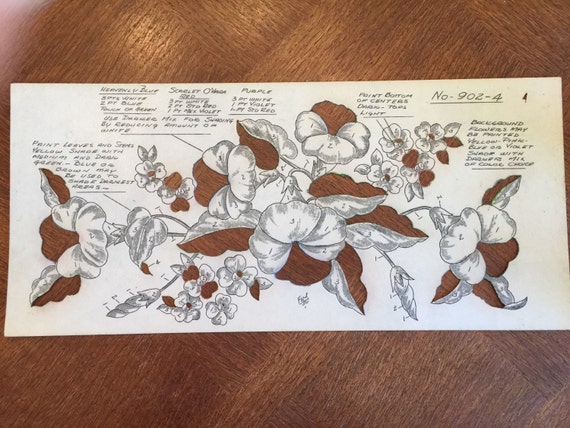 Heavenly Blue
3 pts White
2 pt Blue
Touch of Green
Scarlet O'Hara
Red
3 pt White
2 pt Std Red
1 pt Med Violet
Purple
3 pt White
1 pt Violet
1 pt Std Red
Use Darker Mix for Shading
by Reducing Amount of
White
Paint Leaves and Stems
Yellow Shade with
Medium and Dark
Green - Blue or
Brown may
be used to
Shade Darkest
Areas
Paint Bottom
of Centers
Dark - Tops
Light
No-902-4
Background
Flowers may
be Painted
Yellow - Pink -
Blue or Violet
Shade with
Darker Mix
of Color Choice